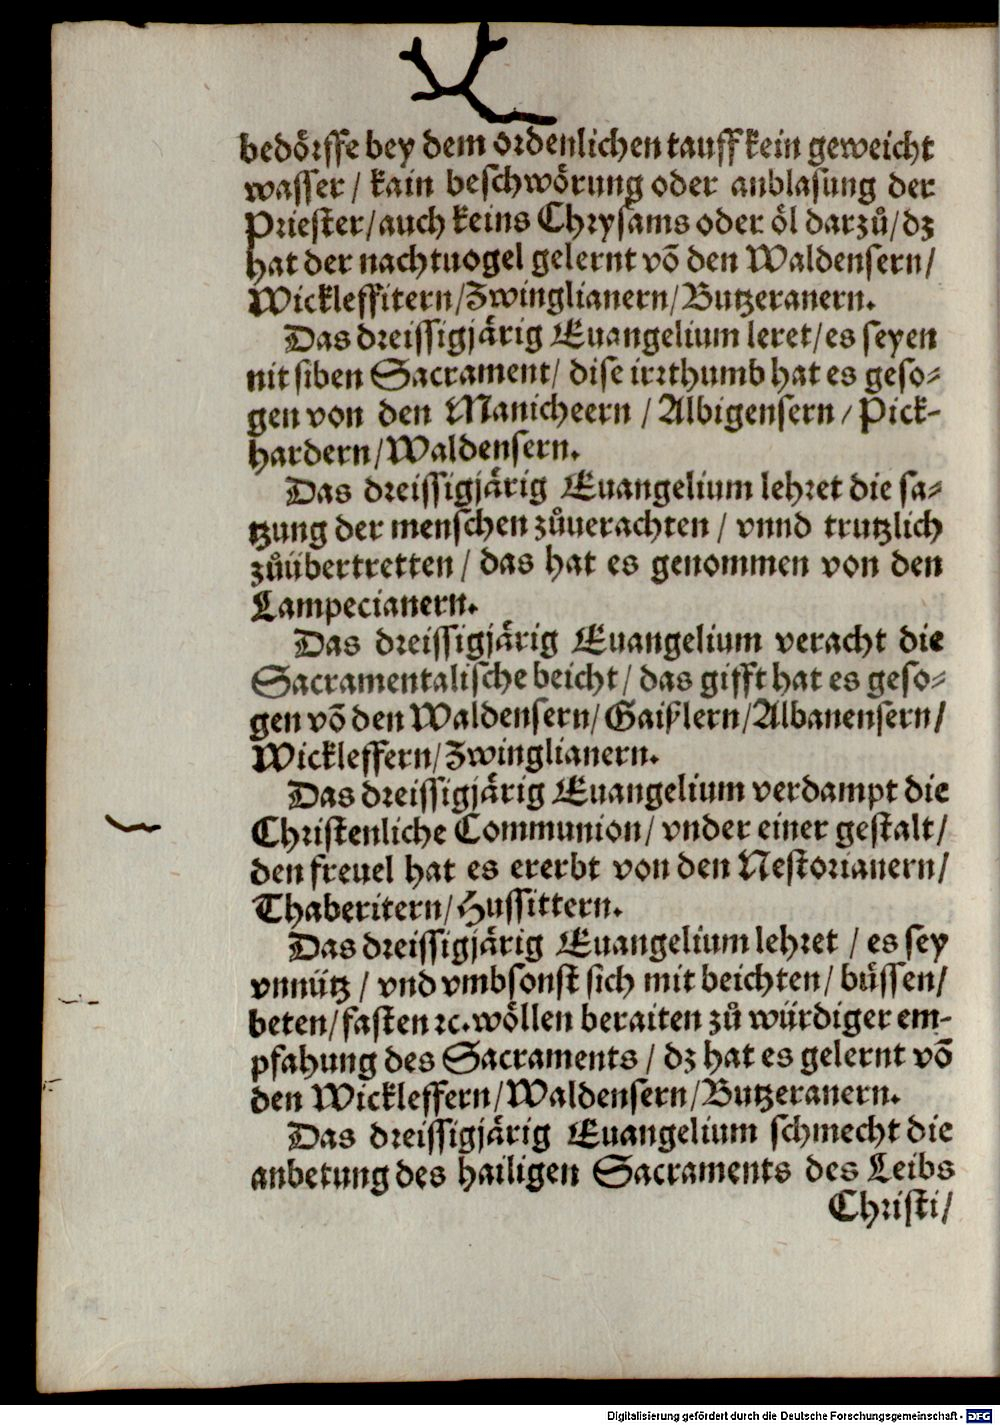 bedörffe bey dem ordenlichen tauff kein geweicht
wasser / kain beschwörung oder anblasung der
Priester / auch keins Chrysams oder öl darzů / dz
hat der nachtuogel gelernt võ den Waldensern /
Wickleffitern / Zwinglianern / Butzeranern.
Das dreissigjärig Euangelium leret / es seyen
nit siben Sacrament / dise irrthumb hat es geso-
gen von den Manicheern / Albigensern / Pick-
hardern / Waldensern.
Das dreissigjärig Euangelium lehret die sa-
tzung der menschen zůuerachten / vnnd trutzlich
zůübertretten / das hat es genommen von den
Lampecianern.
Das dreissigjärig Euangelium veracht die
Sacramentalische beicht / das gifft hat es geso-
gen võ den Waldensern / Gaißlern / Albanensern /
Wickleffern / Zwinglianern.
Das dreissigjärig Euangelium verdampt die
Christenliche Communion / vnder einer gestalt /
den freuel hat es ererbt von den Nestorianern /
Thaberitern / Hussittern.
Das dreissigjärig Euangelium lehret / es sey
vnnütz / vnd vmbsonst sich mit beichten / büssen /
beten / fasten ꝛc. wöllen beraiten zů würdiger em-
pfahung des Sacraments / dz hat es gelernt võ
den Wickleffern / Waldensern / Butzeranern.
Das dreissigjärig Euangelium schmecht die
anbetung des hailigen Sacraments des Leibs
Christi /
Digitalisierung gefördert durch die Deutsche Forschungsgemeinschaft - DFG